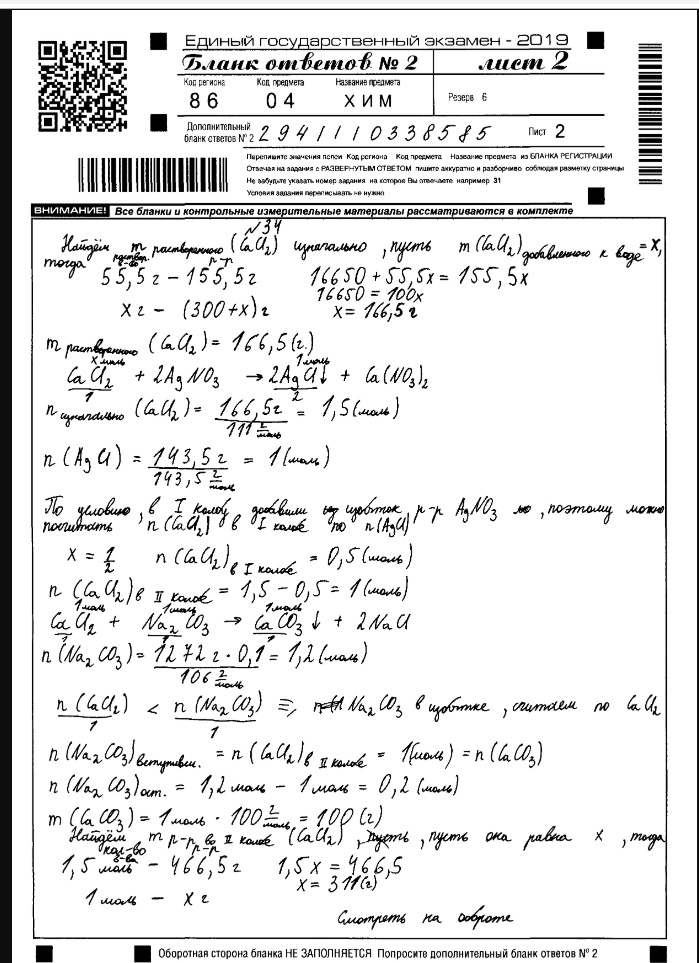 Единый государственный экзамен - 2019
Бланк ответов № 2 лист 2
Код региона Код предмета Название предмета
86 04 ХИМ Резерв 6
Дополнительный бланк ответов № 2 2941110338585 Лист 2
Перепишите значения полей Код региона Код предмета Название предмета из БЛАНКА РЕГИСТРАЦИИ
Отвечая на задания с РАЗВЕРНУТЫМ ОТВЕТОМ пишите аккуратно и разборчиво соблюдая разметку страницы
Не забудьте указать номер задания на которое Вы отвечаете например 31
Условия задания переписывать не нужно
ВНИМАНИЕ! Все бланки и контрольные измерительные материалы рассматриваются в комплекте
№34
Найдём m растворенного (CaCl₂) изначально, пусть m(CaCl₂) добавленного к воде = x,
тогда раствор. в-во р-р
55,5г – 155,5г 16650 + 55,5x = 155,5x
16650 = 100x
xг – (300+x)г x = 166,5г
m растворенного (CaCl₂) = 166,5(г.)
x моль 1моль
CaCl₂ + 2AgNO₃ → 2AgCl↓ + Ca(NO₃)₂
1 2
n изначально (CaCl₂) = 166,5г / 111 г/моль = 1,5(моль)
n(AgCl) = 143,5г / 143,5 г/моль = 1(моль)
По условию, в I колбу добавили избыток р-р AgNO₃, поэтому можно
посчитать n(CaCl₂) в I колбе по n(AgCl)
x = 1/2 n(CaCl₂) в I колбе = 0,5(моль)
n(CaCl₂) в II колбе = 1,5 – 0,5 = 1(моль)
1моль 1моль 1моль
CaCl₂ + Na₂CO₃ → CaCO₃↓ + 2NaCl
1 1 1
n(Na₂CO₃) = 1272г · 0,1 / 106 г/моль = 1,2(моль)
n(CaCl₂) / 1 < n(Na₂CO₃) / 1 ⇒, Na₂CO₃ в избытке, считаем по CaCl₂
n(Na₂CO₃) вступивш. = n(CaCl₂) в II колбе = 1(моль) = n(CaCO₃)
n(Na₂CO₃) ост. = 1,2моль – 1моль = 0,2(моль)
m(CaCO₃) = 1моль · 100 г/моль = 100(г)
Найдём m р-р во II колбе (CaCl₂), пусть, пусть она равна x, тогда
кол-во в-ва р-р
1,5моль – 466,5г 1,5x = 466,5
x = 311(г)
1моль – xг
Смотреть на обороте
Оборотная сторона бланка НЕ ЗАПОЛНЯЕТСЯ Попросите дополнительный бланк ответов № 2